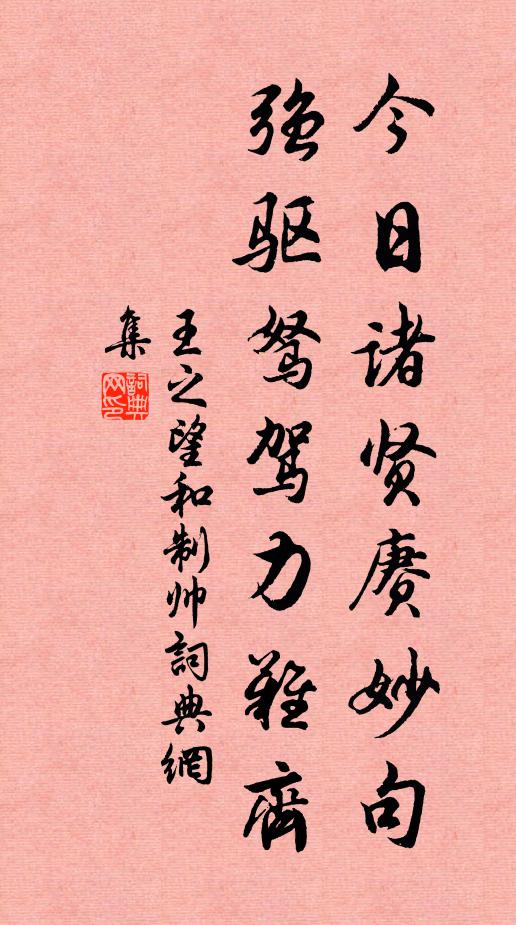 今日诸贤赓妙句
强驱驽驾力难齊
王之望和制帅詞典網
集
詞典网印